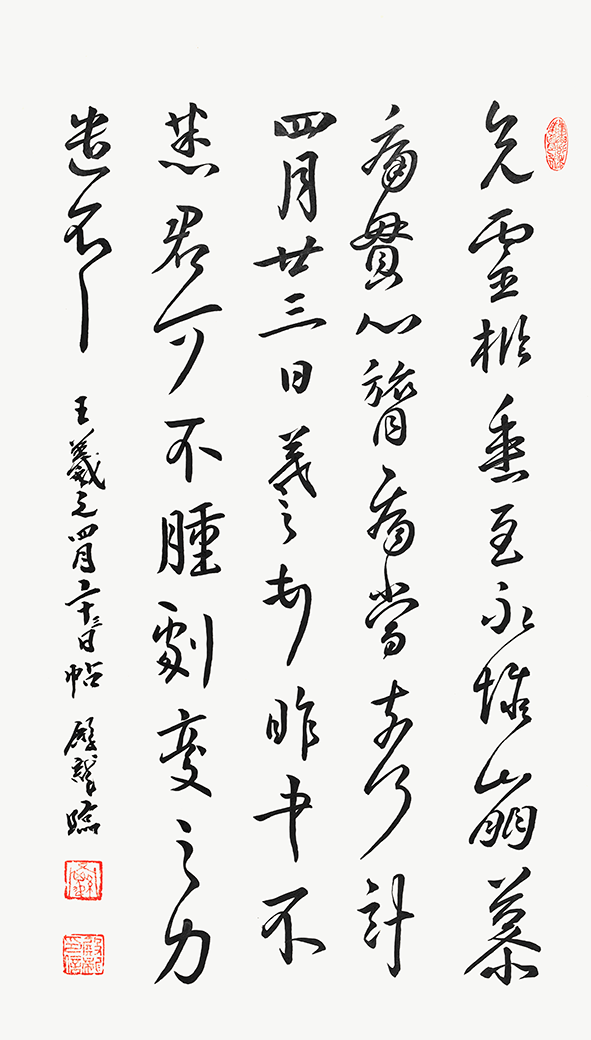 兄靈柩垂至永惟崩慕
痛貫心膂痛當奈何計
四月廿三日羲之昨書不
悉君可不腫劇憂之力
遣不
王羲之四月二十三日帖 臨